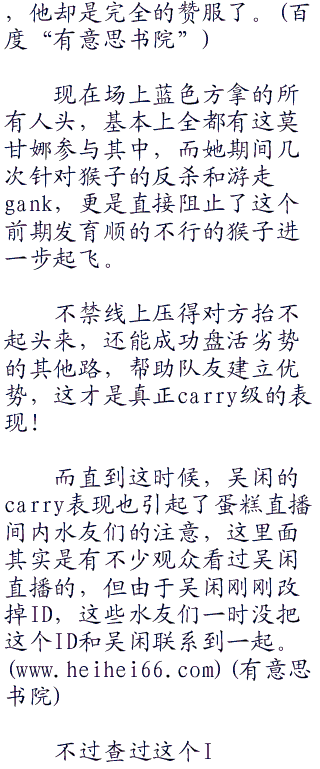 ，他却是完全的赞服了。(百
度“有意思书院”)
现在场上蓝色方拿的所
有人头，基本上全都有这莫
甘娜参与其中，而她期间几
次针对猴子的反杀和游走
gank，更是直接阻止了这个
前期发育顺的不行的猴子进
一步起飞。
不禁线上压得对方抬不
起头来，还能成功盘活劣势
的其他路，帮助队友建立优
势，这才是真正carry级的表
现！
而直到这时候，吴闲的
carry表现也引起了蛋糕直播
间内水友们的注意，这里面
其实是有不少观众看过吴闲
直播的，但由于吴闲刚刚改
掉ID，这些水友们一时没把
这个ID和吴闲联系到一起。
(www.heihei66.com)(有意思
书院)
不过查过这个I